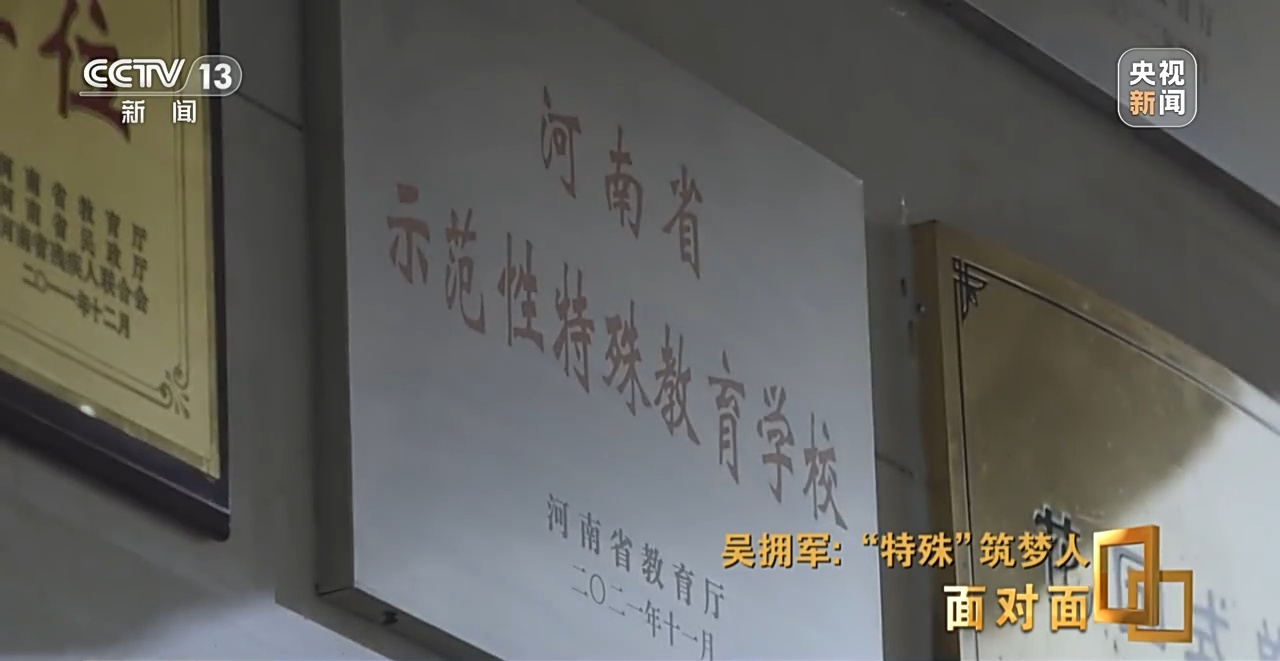 CCTV 13
新闻
央视
新闻
位
河南省教育厅
河南省民政厅
河南省残疾人联合会
二〇一一年十二月
河南省
示范性特殊教育学校
河南省教育厅
二〇二一年十一月
吴拥军：“特殊”筑梦人
面对面